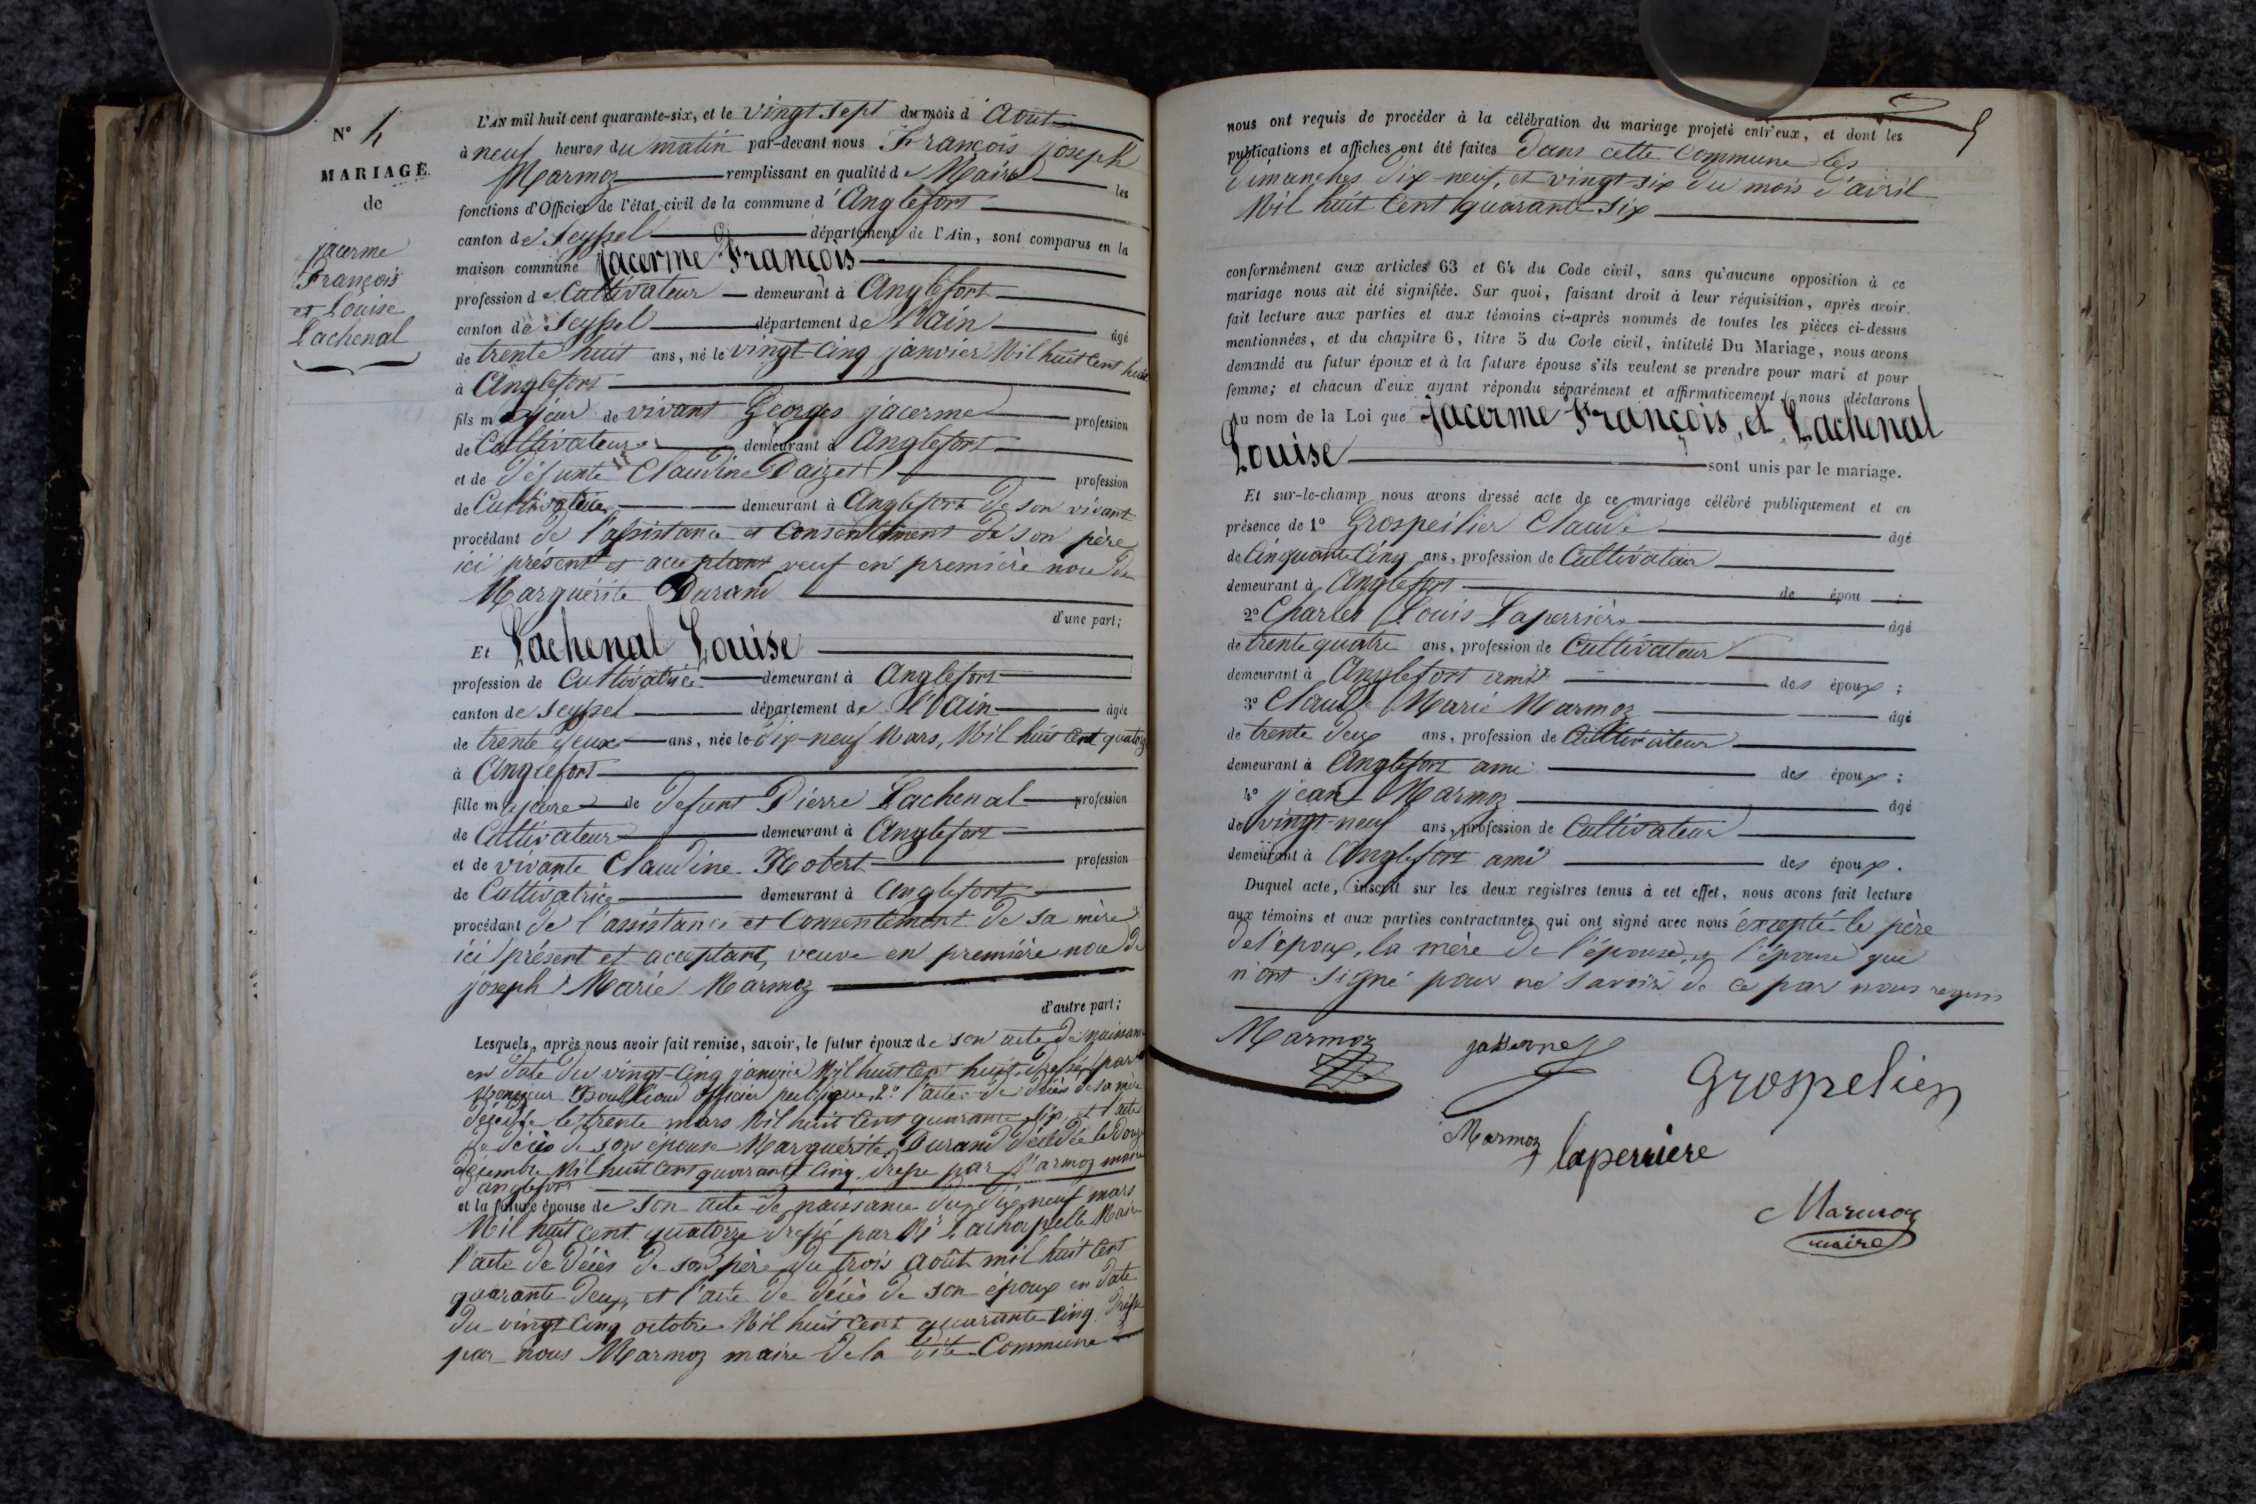 N° 4
MARIAGE
de
jacerme
François
et Louise
Lachenal
L'AN mil huit cent quarante-six, et le vingt sept du mois d'Août
à neuf heures du matin par-devant nous François joseph
Marmoz remplissant en qualité de Maire les
fonctions d'Officier de l'état civil de la commune d'Anglefort
canton de Seyssel département de l'Ain, sont comparus en la
maison commune Jacerme François
profession de Cultivateur demeurant à Anglefort
canton de Seyssel département de l'ain âgé
de trente huit ans, né le vingt-Cinq janvier Mil huit Cent huit
à Anglefort
fils majeur de vivant Georges jacerme profession
de Cultivateur demeurant à Anglefort
et de défunte Claudine Daizet profession
de Cultivatrice demeurant à Anglefort de son vivant
procédant de l'assistance et Consentement de son père
ici présent et acceptant veuf en première noce de
Marguérite Durand
d'une part;
Et Lachenal Louise
profession de Cultivatrice demeurant à Anglefort
canton de Seyssel département de l'ain âgée
de trente deux ans, née le dix-neuf Mars, Mil huit Cent quatorze
à Anglefort
fille majeure de defunt Pierre Lachenal profession
de Cultivateur demeurant à Anglefort
et de vivante Claudine Robert profession
de Cultivatrice demeurant à Anglefort
procédant de l'assistance et Consentement de sa mère
ici présent et acceptant, veuve en première noce de
joseph Marie Marmoz
d'autre part;
Lesquels, après nous avoir fait remise, savoir, le futur époux de son acte de naissance
en date du vingt-Cinq janvier Mil huit Cent huit dressé par
officier publique, 2° l'acte de décès de sa mère
décédée le trente mars Mil huit Cent quarante six, et l'acte
de décès de son épouse Marguerite Durand décédée le douze
décembre Mil huit Cent quarante Cinq dressé par Marmoz maire
d'anglefort
et la future épouse de son acte de naissance du dix neuf mars
Mil huit cent quatorze dressé par Mr Lachapelle Maire
l'acte de décès de son père du trois Août mil huit Cent
quarante deux, et l'acte de décès de son époux en date
du vingt Cinq octobre Mil huit Cent quarante Cinq dressé
par nous Marmoz maire de la dite Commune
nous ont requis de procéder à la célébration du mariage projeté entr'eux, et dont les
publications et affiches ont été faites dans cette Commune les
dimanches dix-neuf, et vingt-six du mois d'avril
Mil huit Cent quarante six
conformément aux articles 63 et 64 du Code civil, sans qu'aucune opposition à ce
mariage nous ait été signifiée. Sur quoi, faisant droit à leur réquisition, après avoir
fait lecture aux parties et aux témoins ci-après nommés de toutes les pièces ci-dessus
mentionnées, et du chapitre 6, titre 5 du Code civil, intitulé Du Mariage, nous avons
demandé au futur époux et à la future épouse s'ils veulent se prendre pour mari et pour
femme; et chacun d'eux ayant répondu séparément et affirmativement, nous déclarons
Au nom de la Loi que Jacerme François, et Lachenal
Louise sont unis par le mariage.
Et sur-le-champ nous avons dressé acte de ce mariage célébré publiquement et en
présence de 1° Grospeilier Claude âgé
de Cinquante Cinq ans, profession de Cultivateur
demeurant à Anglefort de épou ;
2° Charles Louis Laperrière âgé
de trente quatre ans, profession de Cultivateur
demeurant à Anglefort ami des époux ;
3° Claude Marie Marmoz âgé
de trente deux ans, profession de Cultivateur
demeurant à Anglefort ami des époux ;
4° jean Marmoz âgé
de vingt-neuf ans, profession de Cultivateur
demeurant à Anglefort ami des époux .
Duquel acte, inscrit sur les deux registres tenus à cet effet, nous avons fait lecture
aux témoins et aux parties contractantes qui ont signé avec nous éxcepté le père
de l'époux, la mère de l'épouse, et l'épouse qui
n'ont signé pour ne savoir de ce par nous requis
Marmoz
Grospelien
Marmoz
laperriere
Marmoz
maire